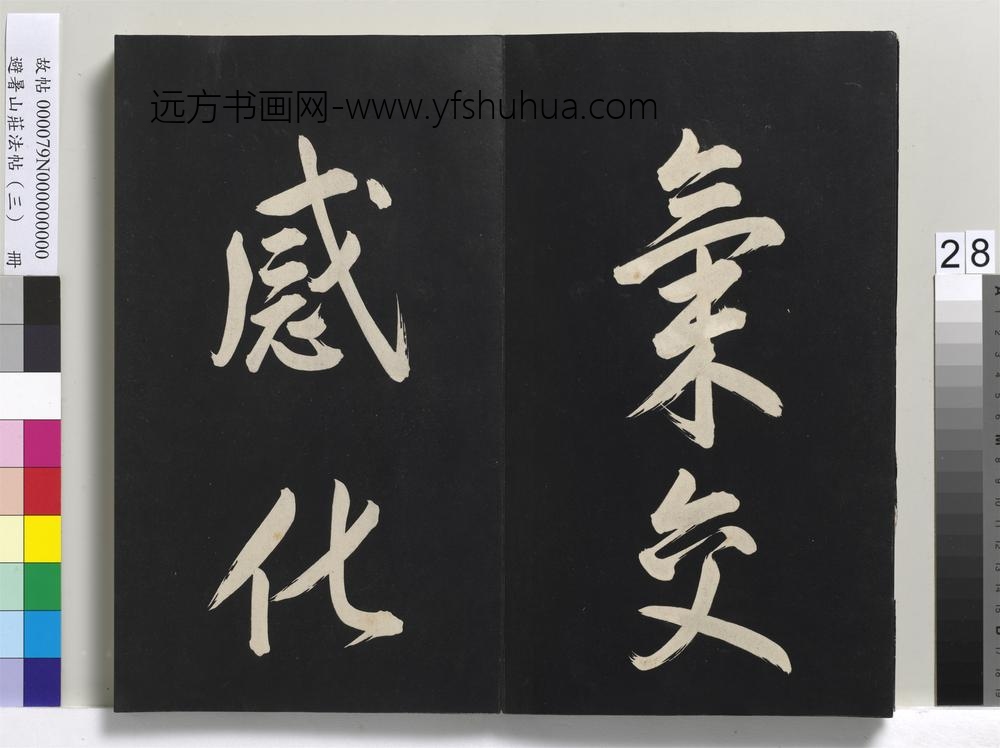 氣交
感化
远方书画网-www.yfshuhua.com
故帖 000079N000000000
避暑山莊法帖(三) 冊
28